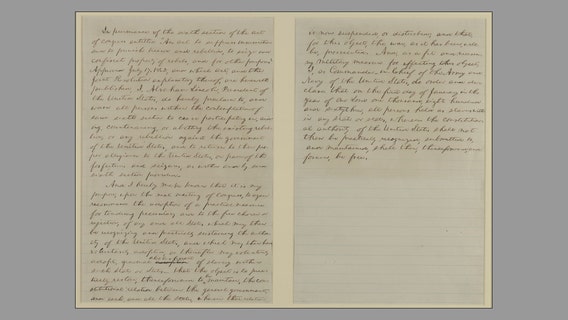 In pursuance of the sixth section of the act
of congress entitled "An act to suppress insurrection
and to punish treason and rebellion, to seize and
confiscate property of rebels, and for other purposes"
Approved July 17, 1862, and which act, and the
Joint Resolution explanatory thereof, are herewith
published, I, Abraham Lincoln, President of
the United States, do hereby proclaim to and
warn all persons within the contemplation of
said sixth section to cease participating in, aid-
ing, countenancing, or abetting the existing rebel-
lion, or any rebellion against the government
of the United States, and to return to their pro-
per allegiance to the United States, on pain of the
forfeitures and seizures, as within and by said
sixth section provided.
And I hereby make known that it is my
purpose, upon the next meeting of congress, to again
recommend the adoption of a practical measure
for tendering pecuniary aid to the free choice or
rejection, of any and all States which may then
be recognizing and practically sustaining the author-
ity of the United States, and which may then have
voluntarily adopted, or thereafter may voluntarily
adopt, gradual abolishment of slavery within
such State or States. That the object is to prac-
tically restore, thenceforward to maintain, the con-
stitutional relation between the general government,
and each and all the states, wherein that relation
is now suspended, or disturbed; and that,
for this object, the war, as it has been, will
be, prosecuted. And, as a fit and necessary
military measure for effecting this object,
I, as Commander-in-Chief of the Army and
Navy of the United States, do order and de-
clare that on the first day of January in the
year of our Lord one thousand, eight hundred
and sixtythree, all persons held as slaves with
in any state or states, wherein the constitution-
al authority of the United States shall not
then be practically recognized, submitted to,
and maintained, shall then, thenceforward, and
forever, be free.